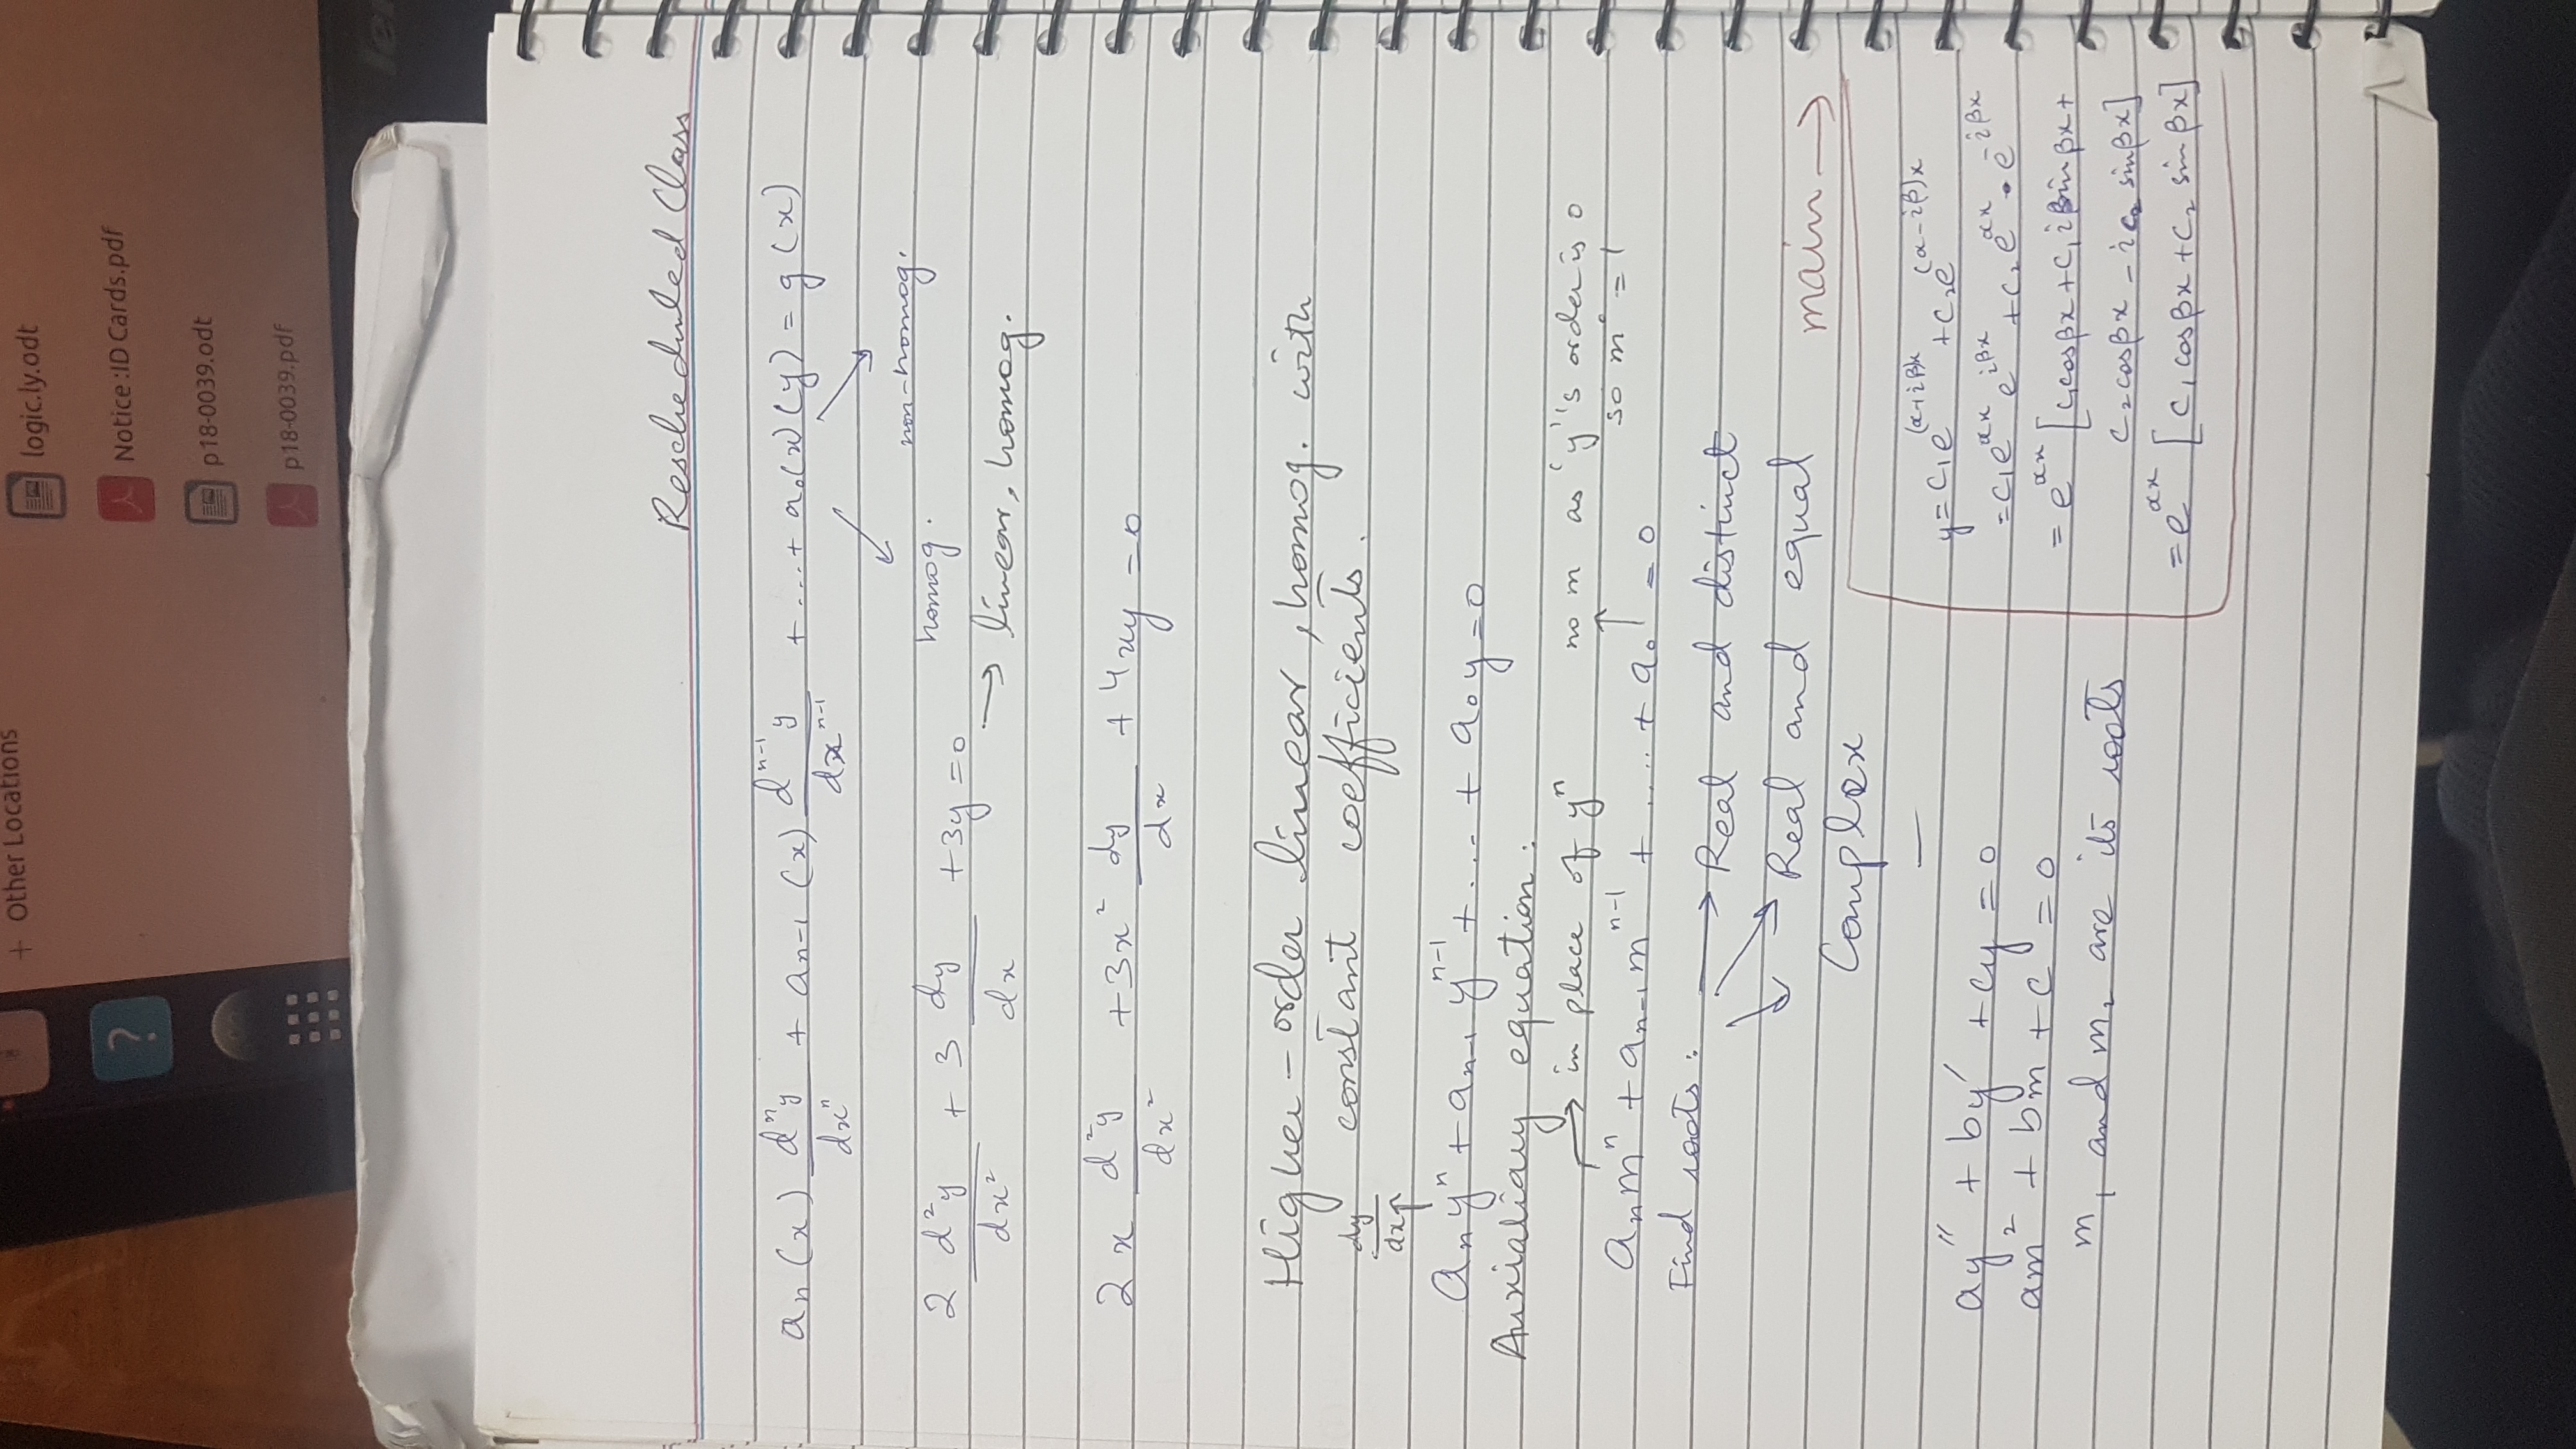 + Other Locations
logic.ly.odt
?
Notice :ID Cards.pdf
p18-0039.odt
p18-0039.pdf
Rescheduled Class
aₙ(x) dⁿy/dxⁿ + aₙ₋₁(x) dⁿ⁻¹y/dxⁿ⁻¹ + ... + a₀(x)(y) = g(x)
homog. non-homog.
2 d²y/dx² + 3 dy/dx + 3y = 0 → linear, homog.
2x d²y/dx² + 3x² dy/dx + 4xy = 0
Higher-order linear, homog. with
constant coefficients.
dy/dx ↑
aₙyⁿ + aₙ₋₁yⁿ⁻¹ + ... + a₀y = 0
Auxialiary equation:
→ in place of yⁿ
no m as 'y''s order is 0
so m° = 1
aₙmⁿ + aₙ₋₁mⁿ⁻¹ + ..... + a₀ ↑ = 0
Find roots: → Real and distinct
Real and equal
Complex
main →
ay'' + by' + cy = 0
am² + bm + c = 0
m₁ and m₂ are its roots
y = c₁e^(α+iβ)x + c₂e^(α-iβ)x
= c₁e^αx e^iβx + c₂e^αx • e^-iβx
= e^αx [c₁cosβx + c₁ i sin βx +
c₂cosβx - ic₂ sinβx]
= e^αx [c₁cosβx + c₂ sin βx]